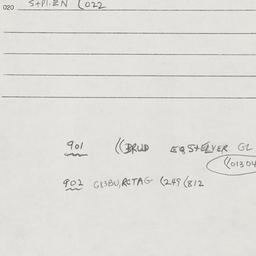 020 S+PI.EN (022
901 ((BRUD EQ,S+ELVER GL
((01304
902 GX3BU,RCTAG (249(812